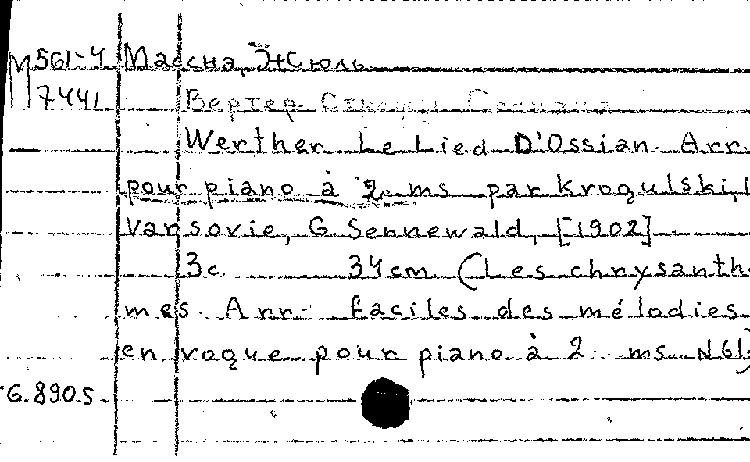 М 561-4 Массна, Жюль
7441 Вертер.
Werther. Le Lied D'Ossian. Arr.
pour piano à 2 ms par Krogulski, I
Varsovie, G. Sennewald, [1902]
3с. 34cm (Les chrysanth
mes. Arr. faciles des mélodies
en vogue pour piano à 2 ms N61)
G.890S.